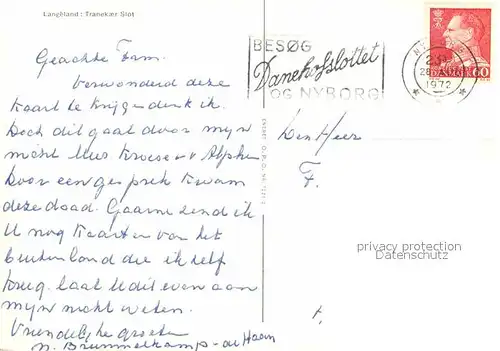 Langeland: Tranekær Slot
Geachte Fam.
Verwonderd deze
kaart te krijgen denk ik.
Doch dit gaat door mijn
nicht Mevr Kroese v v Alphen
Door een gesprek kwam
deze daad. Gaarne zend ik
U nog kaarten van het
buitenland die ik zelf
krug. laat U dit even aan
mijn nicht weten.
Vriendelijke groeten
N. Brummelkamp - de Haan
BESØG
Danehofslottet
OG NYBORG
1972
60
Den Heer
F.
privacy protection
ansichtskarten-center.de